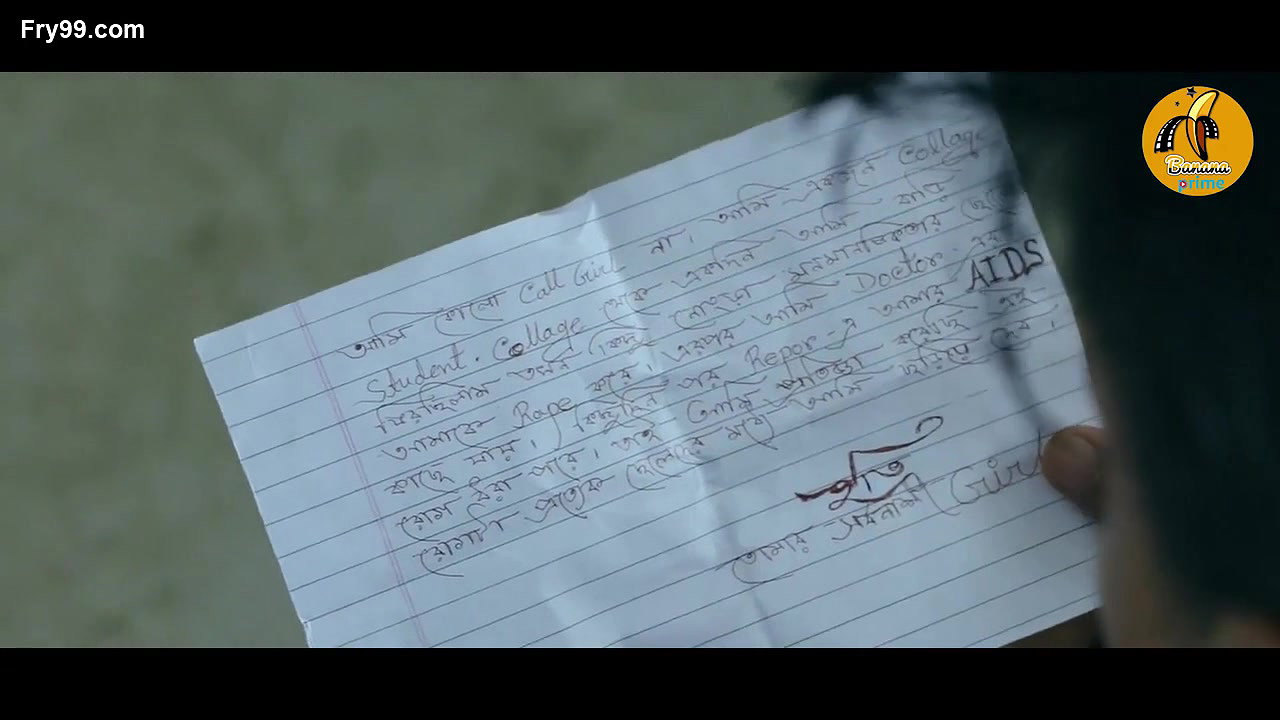 Fry99.com
Banana
prime
আমি কোনো Call Girl না। আমি একজন Collage
Student. Collage থেকে একদিন আমি বাড়ি
ফিরছিলাম তখন কিছু নোংরা মনমানষিকতার ছেলে
আমাকে Rape করে। এরপর আমি Doctor এর
কাছে যায়। কিছুদিন পর Repor-এ আমার AIDS
রোগ ধরা পরে। তাই আমি প্রতিজ্ঞা করেছি এই
রোগটা প্রত্যেক ছেলেদের মধ্যে আমি ছড়িয়ে দেব।
ইতি
তোমার সর্বনাশী Girl